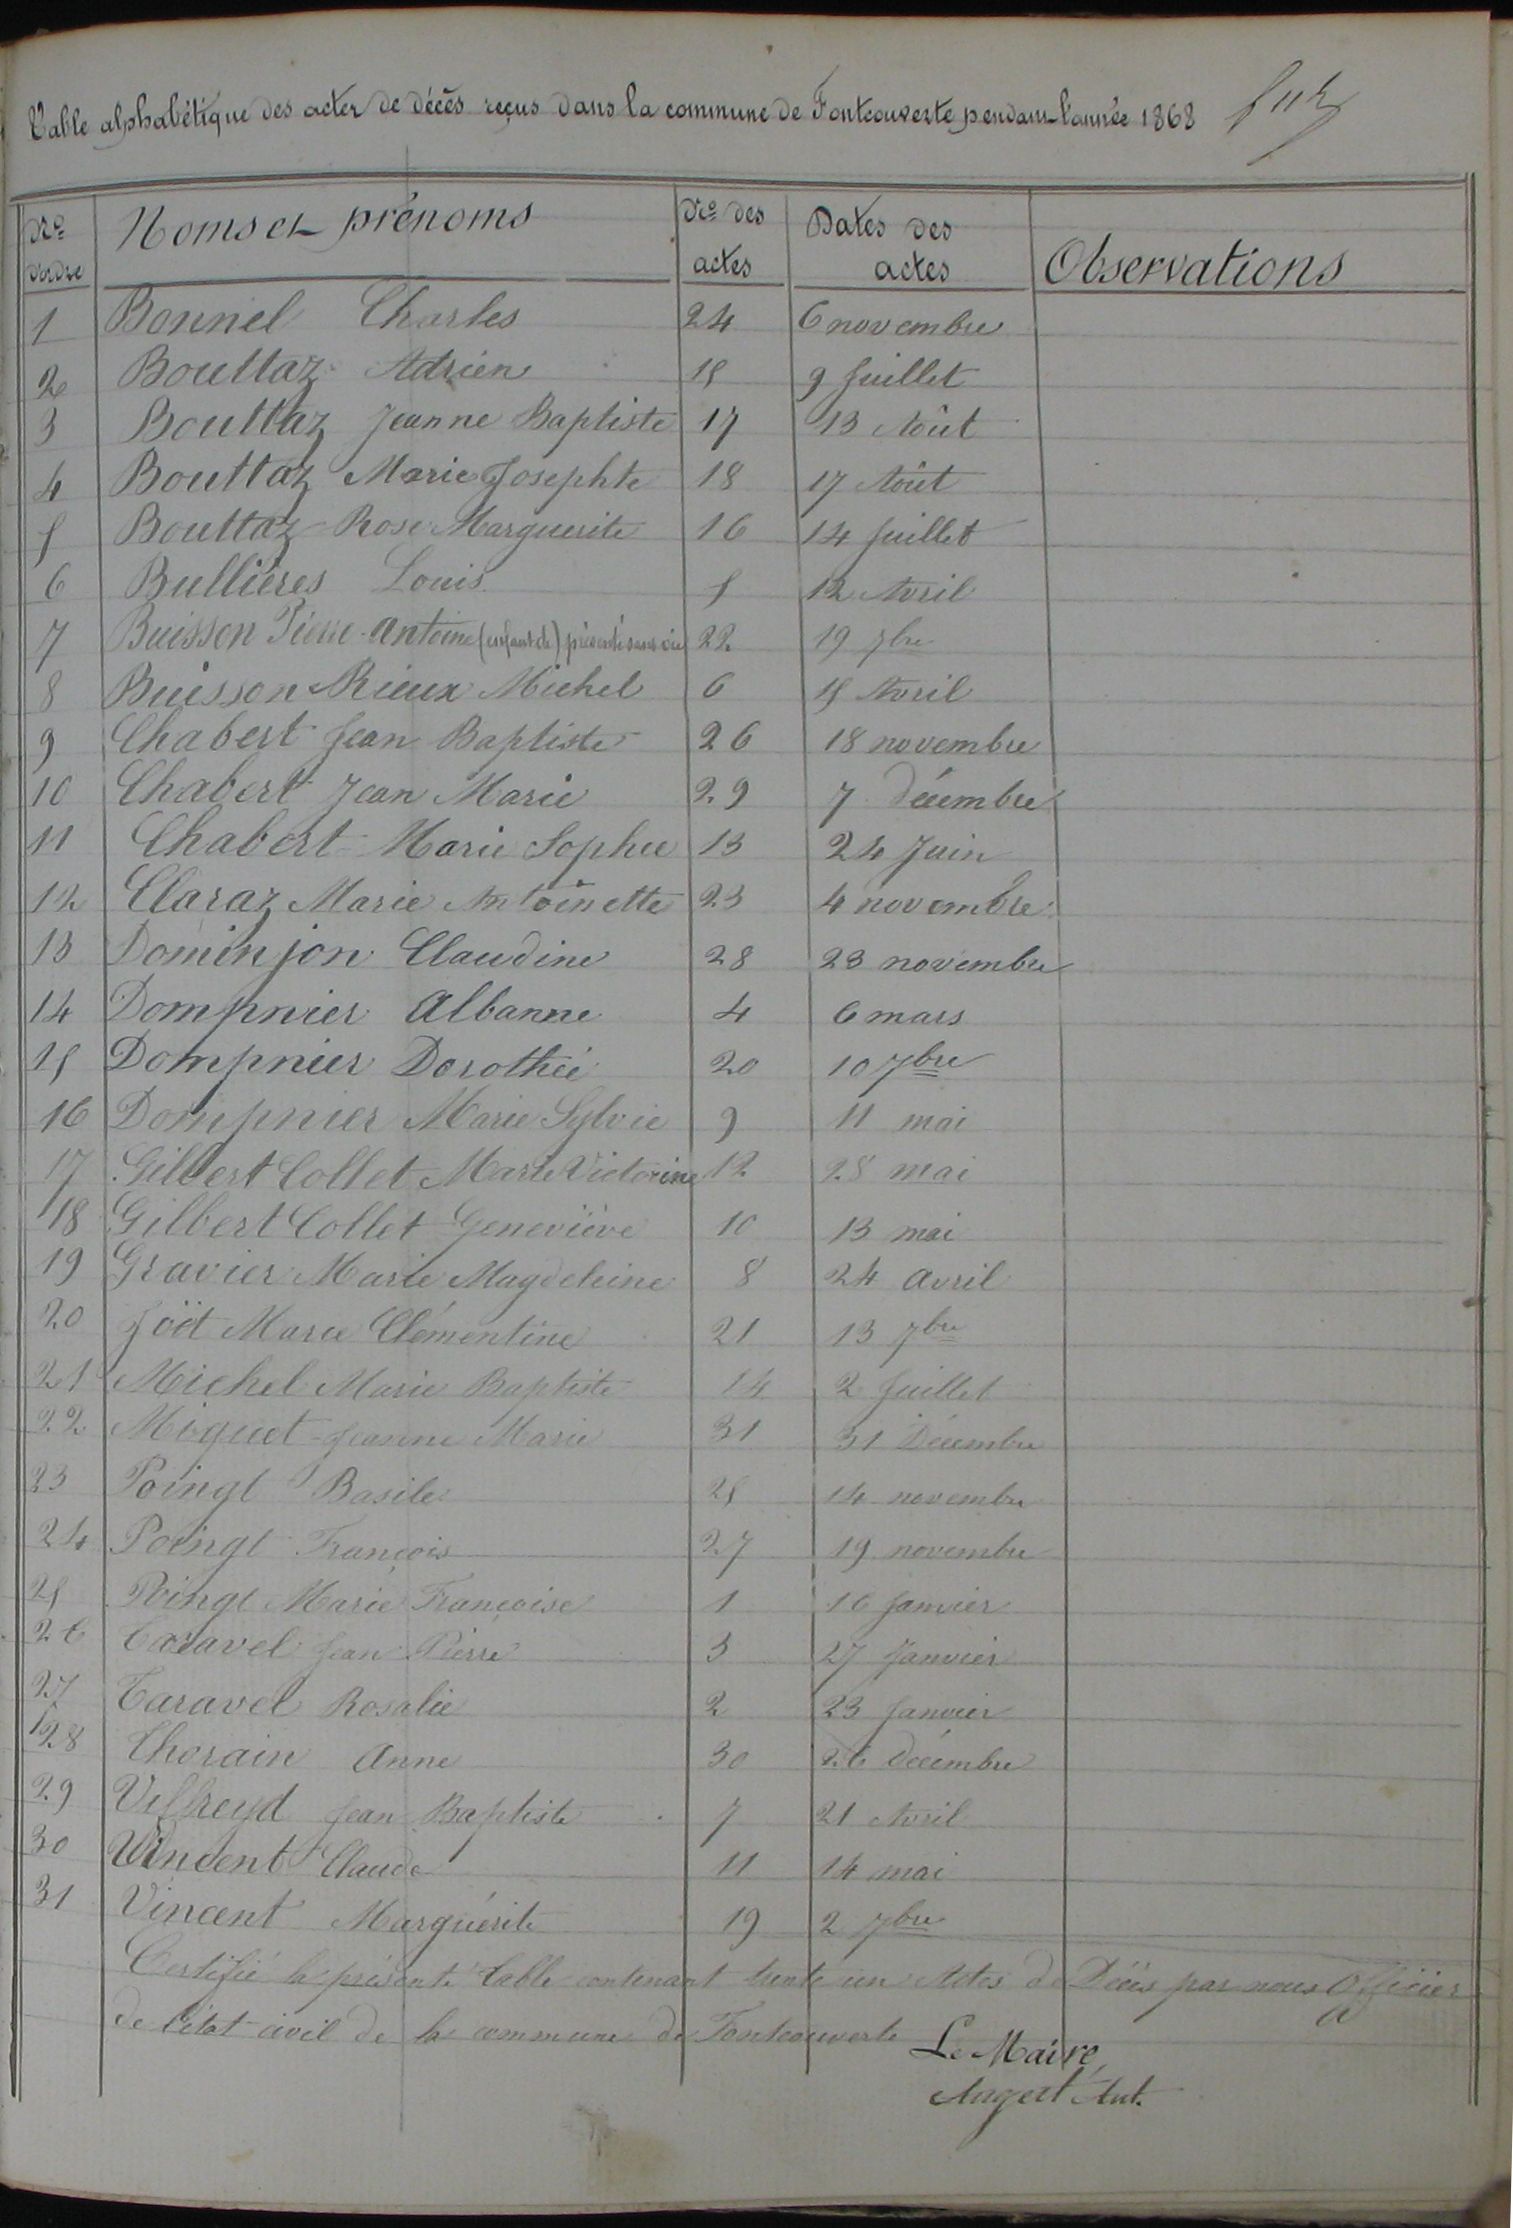 Table alphabétique des actes de décès reçus dans la commune de Fontcouverte pendant l'année 1868
No d'ordre Noms et prénoms No des actes Dates des actes Observations
1 Bonnel Charles 24 6 novembre
2 Bouttaz Adrien 15 9 Juillet
3 Bouttaz Jeanne Baptiste 17 13 Août
4 Bouttaz Marie Josephte 18 17 Août
5 Bouttaz Rose Marguerite 16 14 Juillet
6 Bullières Louis 5 12 Avril
7 Buisson Pierre Antoine (enfant de) présenté sans vie 22 19 7bre
8 Buisson Rieux Michel 6 15 Avril
9 Chabert Jean Baptiste 26 18 novembre
10 Chabert Jean Marie 29 7 décembre
11 Chabert Marie Sophie 13 24 Juin
12 Claraz Marie Antoinette 23 4 novembre
13 Dominjon Claudine 28 23 novembre
14 Dompnier Albanne 4 6 mars
15 Dompnier Dorothée 20 10 7bre
16 Dompnier Marie Sylvie 9 11 mai
17 Gilbert Collet Marie Victorine 12 28 mai
18 Gilbert Collet Geneviève 10 13 mai
19 Gravier Marie Magdeleine 8 24 avril
20 Joët Marie Clémentine 21 13 7bre
21 Michel Marie Baptiste 14 2 Juillet
22 Miquet Jeanne Marie 31 31 Décembre
23 Poingt Basile 25 14 novembre
24 Poingt François 27 19 novembre
25 Poingt Marie Françoise 1 16 Janvier
26 Taravel Jean Pierre 3 27 Janvier
27 Taravel Rosalie 2 23 Janvier
28 Thorain Anne 30 26 décembre
29 Villreyd Jean Baptiste 7 21 Avril
30 Vincent Claude 11 14 mai
31 Vincent Marguérite 19 2 7bre
Certifié la présente table contenant trente un Actes de Décès par nous Officier
de l'état civil de la commune de Fontcouverte
Le Maire,
Augert Ant.